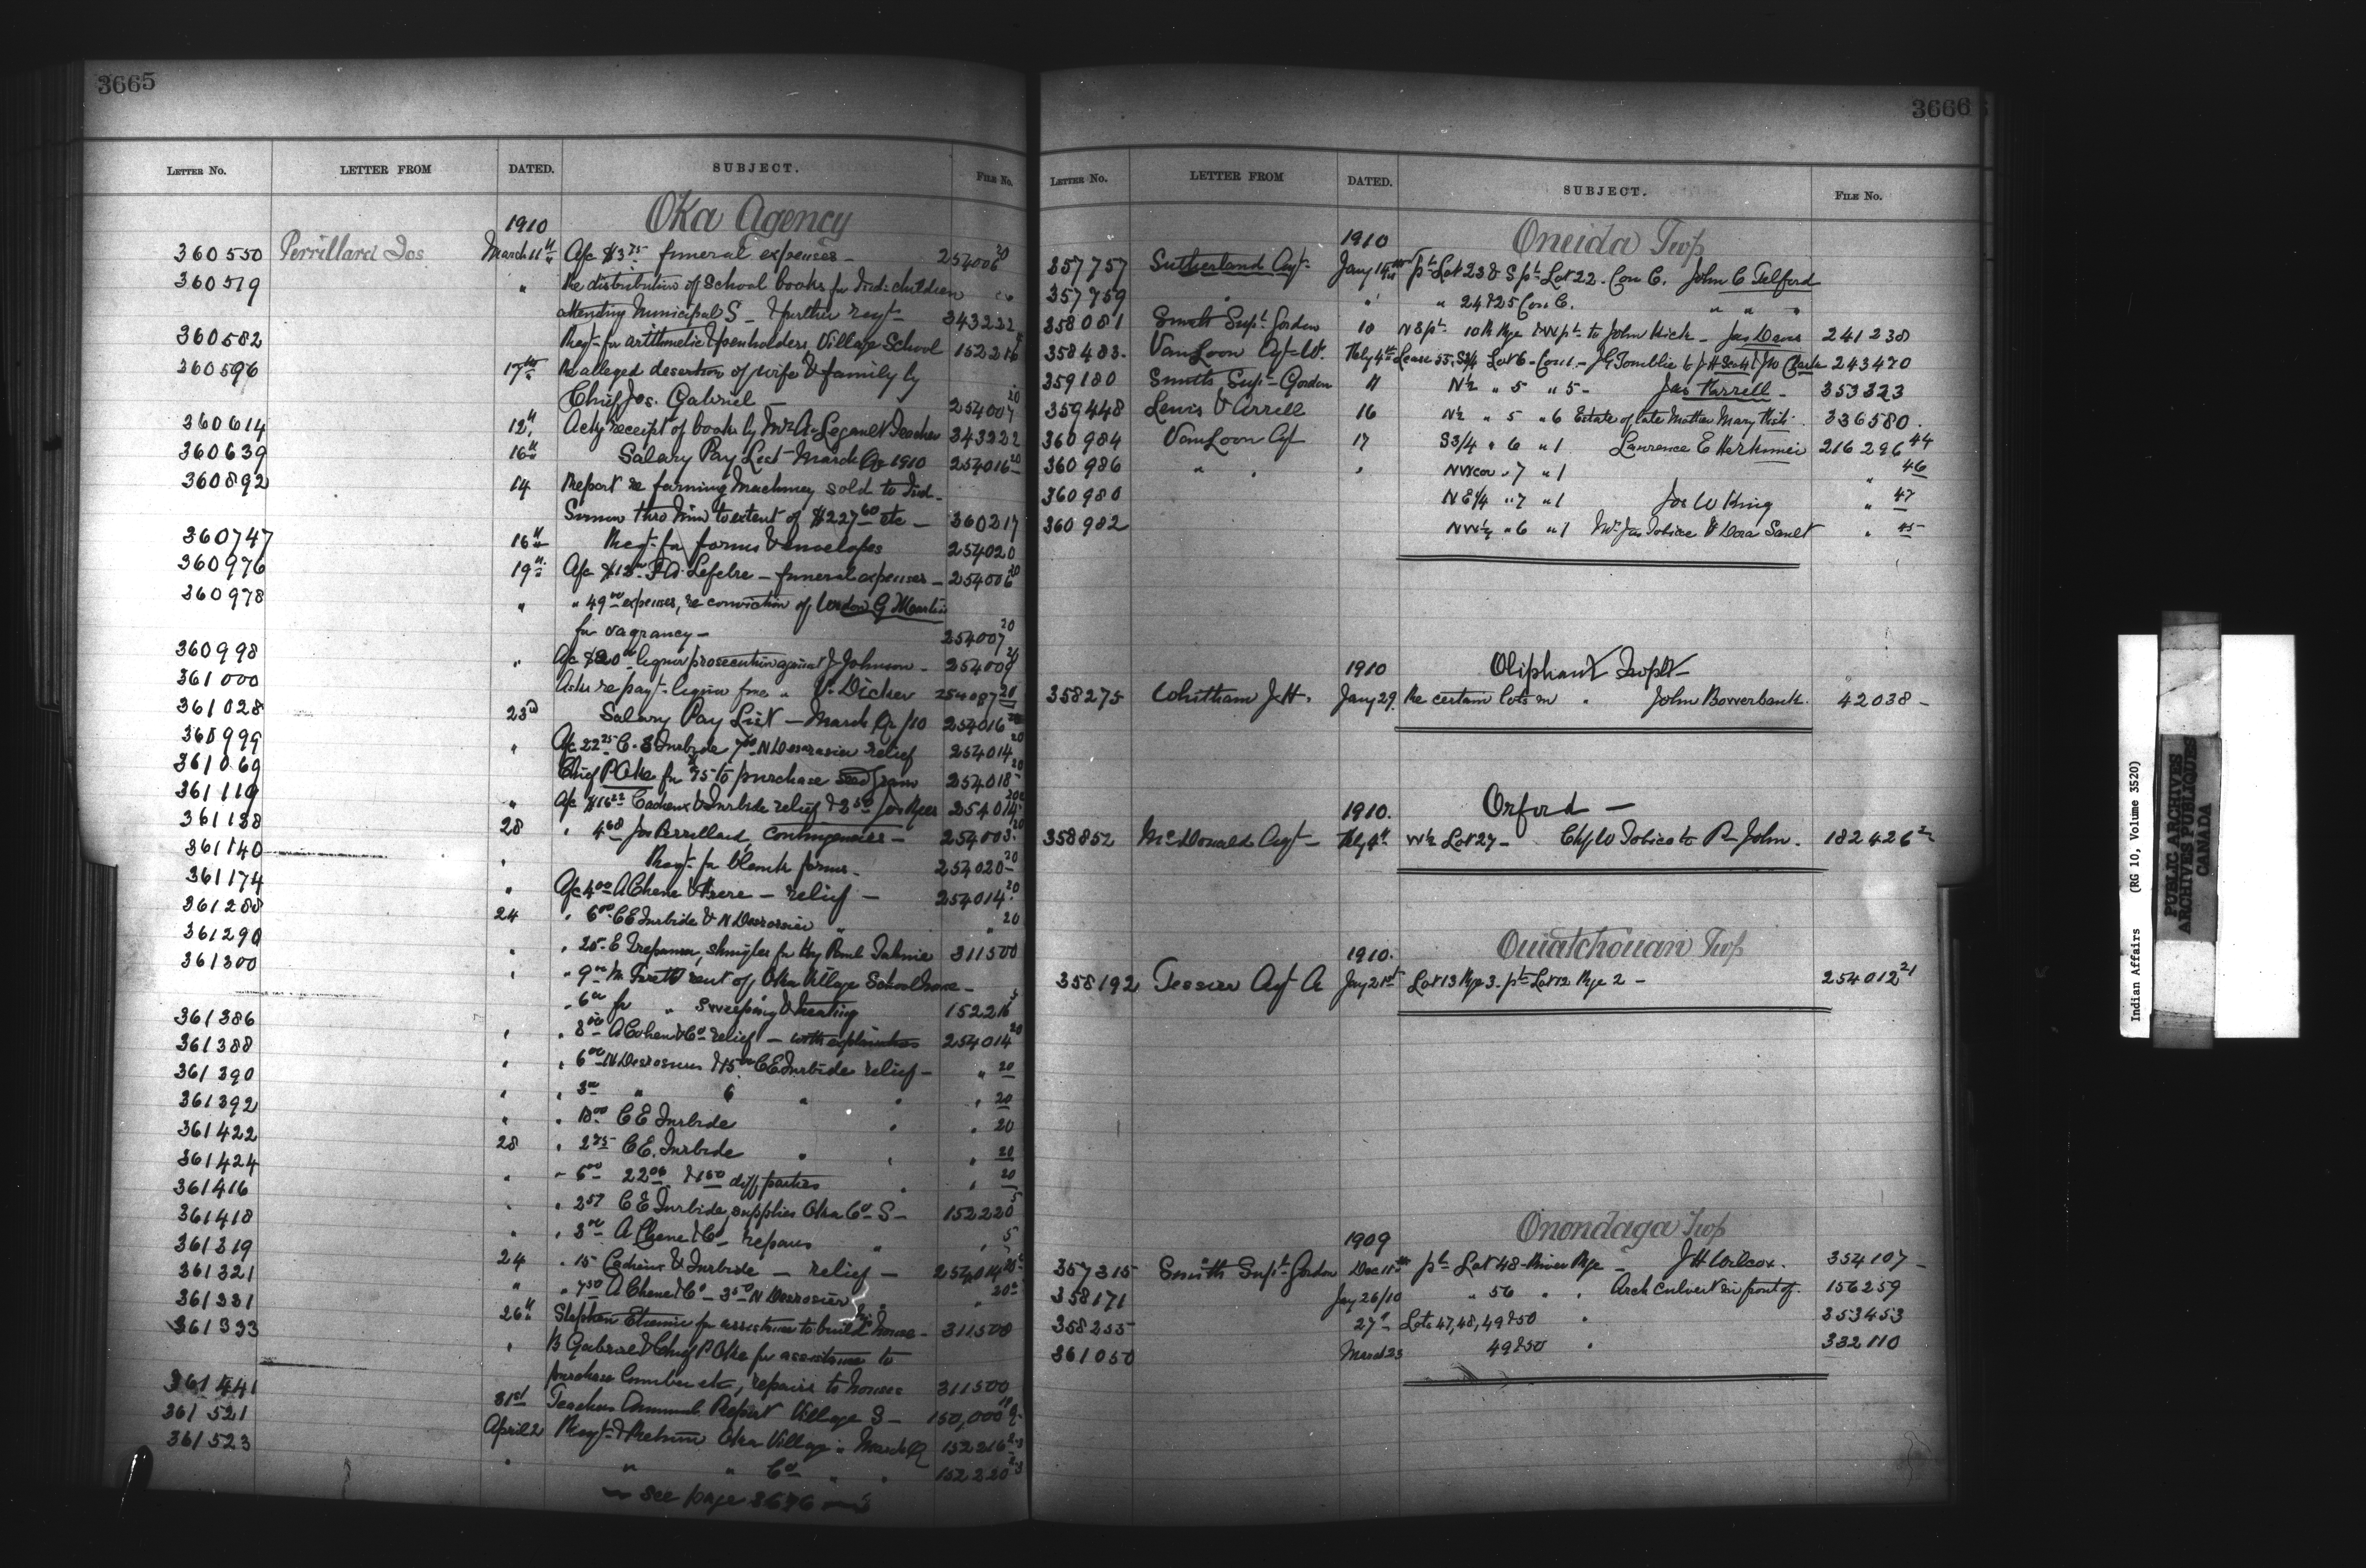 3665
LETTER NO. LETTER FROM DATED. SUBJECT. FILE NO.
Oka Agency
1910
360550 Perrillard Jos March 11th A/c $3.75 funeral expenses - 254006 20
360519 " Re distribution of School books for Ind. children
attending Municipal S - & further reqt 343222
360582 Reqt for arithmetic & penholders, Village School 152216 5
360596 17th Re alleged desertion of wife & family by
Chief Jos. Gabriel - 254007 20
360614 12th Ackg receipt of books by Mr A. Legault Teacher 343222
360639 16th Salary Pay List - March Qr 1910 254016 20
360892 14 Report re farming machinery sold to Ind-
thro him to extent of $227.60 etc - 360217
360747 16th Reqt for forms & envelopes 254020
360976 19th A/c $12 F.A. Lefebre - funeral expenses - 254006 20
360978 " " 49.00 expenses, re conviction of G Martin
for vagrancy - 254007 20
360998 " A/c $20.00 liquor prosecution against J. Johnson - 254009 20
361000 Asks repayt liquor fine " V. Dicker 254087 20
361028 23rd Salary Pay List - March Qr/10 254016 20
360999 " A/c 22.25 C.E. Inrbide 7.50 N Desrosier relief 254014 20
361069 Chief P Oke for $75 to purchase seed grain 254018 20
361119 " A/c $16.22 Cadieux & Inrbide relief & 2.50 Jos Nyer 254014 20
361138 28 " 4.68 Jos Perrillard, contingencies - 254003 20
361140 " Reqt for blank forms - 254020 20
361174 " A/c 4.00 A Chene & Frere - relief - 254014 20
361288 24 " 6.00 C E Inrbide & N Desrosier " " 20
361290 " " 25- E Trepanier, shingles for Hy Paul 311500
361300 " " 9.00 M. rent of Oka Village Schoolhouse -
" 6.00 for " sweeping & heating 152216 5
361386 " " 8.00 A Cohen & Co relief - with explanation 254014 20
361388 " " 6.00 N Desrosiers & 15.00 C E Inrbide relief - " 20
361390 " " 3.00 " 6 " " " 20
361392 " " 10.00 C E Inrbide " " 20
361422 28 " 2.75 C E. Inrbide " " " 20
361424 " " 6.00 22.06 & 1.50 diff parties " " 20
361416 " " 2.57 C E Inrbide, supplies Oka Co. S - 152220 5
361418 " " 3.00 A Chene & Co - repairs " " 5
361319 24 " 15 Cadieux & Inrbide - relief - 254014 20
361321 " " 7.50 A Chene & Co - 3.50 N Desrosier " " 20
361331 26th Stephen Etienne for assistance to build house - 311500
361333 " B Gabriel & Chief P Oke for assistance to
purchase lumber etc, repairs to houses 311500
361441 31st Teachers Annual Report Village S - 150,000
361521 April 2 Reqt & Return Oka Village " March Q 152216
361523 " " " Co " " 152220
- see page 3676 -
3666
LETTER NO. LETTER FROM DATED. SUBJECT. FILE NO.
1910 Oneida Twp
357757 Sutherland Agt Jany 14th pt Lot 23 & S pt Lot 22 - Con C. John C Telford
357759 " " " 24 & 25 Con C. " " "
358081 Smith Supt Gordon 10 N E pt 10th Rge & W pt to John Hick - Jas Davis 241238
358483 VanLoon Agt W. Feby 4th Lease 55, S 3/4 Lot 6 - Con 1 - J G Tomblie to J H Scott & J W Clark 243470
359180 Smith, Supt Gordon 11 N 1/2 " 5 " 5 - Jas Farrell - 353323
359448 Lewis & Arrell 16 N 1/2 " 5 " 6 Estate of late Mother Mary 336580
360984 VanLoon Agt 17 S 3/4 " 6 " 1 Lawrence E Herkimer 216296 44
360986 " " " NW cor " 7 " 1 " 46
360980 N E 1/4 " 7 " 1 Jos W King " 47
360982 NW 1/4 " 6 " 1 Mrs Jas Tobicoe & Dora Sault " 45
1910 Oliphant Twplt
358275 Whitham J. H. Jany 29. Re certain lots in " John Bowerbank. 42038 -
1910. Orford -
358852 McDonald Agt - Feby 9th W 1/2 Lot 27 - Chf W Tobias to R John. 182426
1910. Ouiatchouan Twp
358192 Tessier Agt A Jany 21st Lot 13 Rge 3 - pt Lot 12 Rge 2 - 254012 21
1909 Onondaga Twp
357315 Smith Supt Gordon Dec 11th pt Lot 48 - River Rge - J H Wilcox. 354107 -
358171 Jany 26/10 " 56 " " Arch culvert in front of. 156259
358255 27th Lots 47, 48, 49 & 50 " 353453
361050 March 23 49 & 50 " 332110
Indian Affairs (RG 10, Volume 3520)
PUBLIC ARCHIVES
ARCHIVES PUBLIQUES
CANADA